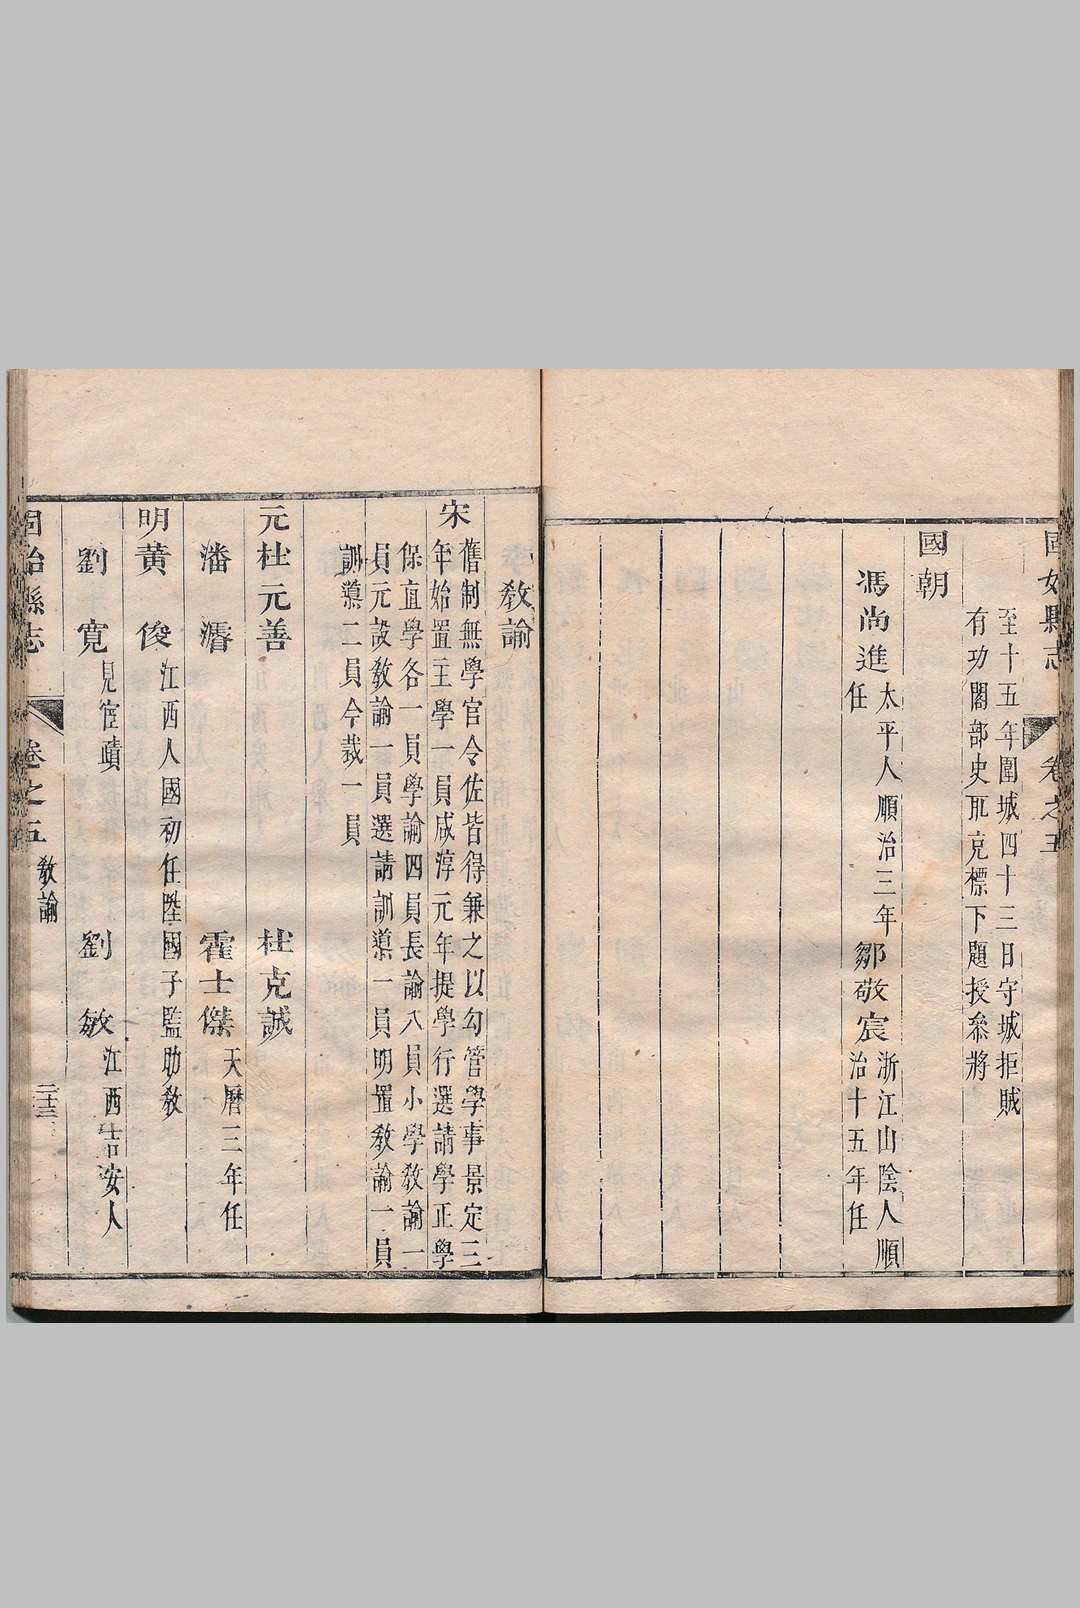 至十五年圍城四十三日守城拒賊
有功閣部史可克標下題授叅將
國朝
馮尚進太平人順治三年任
鄒敬宸浙江山陰人順治十五年任
教諭
宋
舊制無學官令佐皆得兼之以勾管學事景定三
年始置主學一員咸淳元年提學行選請學正學
保直學各一員學諭四員長諭八員小學教諭一
員元設教諭一員選請訓導一員明置教諭一員
訓導二員今裁一員
元杜元善 杜克誠
潘濳 霍士傑天曆三年任
明黃俊江西人國初任陞國子監助教
劉寛見宦蹟 劉敏江西吉安人
卷之五 教諭 二十三